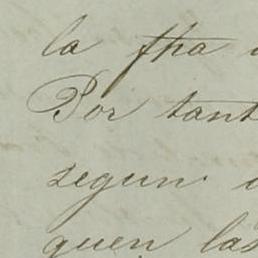 la fha
Por tant
segun
quen las